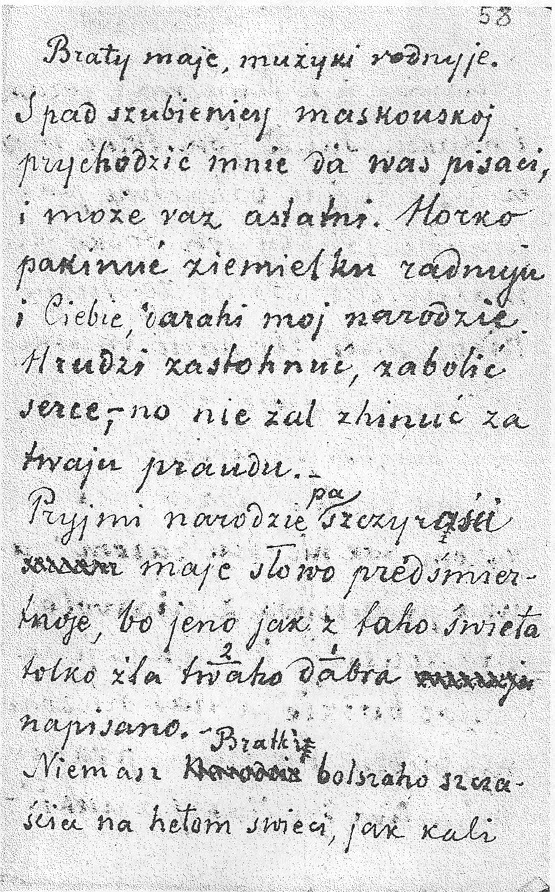 58
Brały maje, mużyki rodnyje.
S pad szubienicy maskouskoj
prychodzić mnie da was pisaci,
i może raz astatni. Horko
pakinuć ziemielku radnuju
i Ciebie, darahi moj narodzie.
Hrudzi zastohnuć, zabolić
serce,– no nie żal zhinuć za
twaju praudu.–
Pryjmi narodzie pa szczyrąści
maje słowo predśmier-
tnoje, bo jeno jak z taho świeta
2 1
tolko dla twaho dabra
napisano.–
Bratkie
Niemasz bolszaho szcza-
ścia na hetom swieci, jak kali